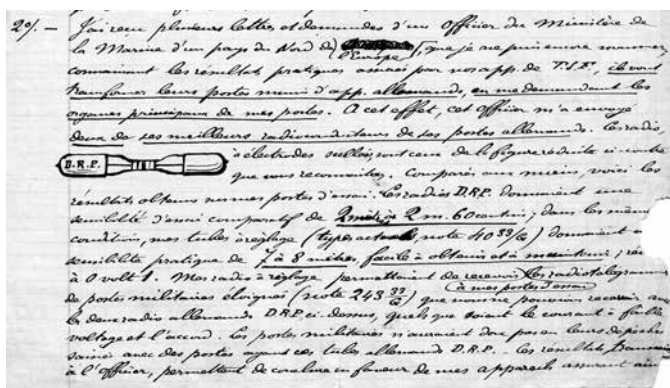 2º/. — J'ai reçu plusieurs lettres et demandes d'un Officier du Ministère de
la Marine d'un pays du Nord de l'Europe, que je ne puis encore nommer
connaissant les résultats pratiques par nos app. de T.S.F., ils vont
transformer leurs postes muni d'app. allemands, en me demandant les
organes principaux de mes postes. A cet effet, cet Officier m'a envoyé
deux de ses meilleurs radioconducteurs de ses postes allemands. Ces radio
D.R.P.
à électrodes sont ceux de la figure réduite ci-contre
que vous reconnaîtrez. Comparés aux miens, voici les
résultats obtenus sur mes postes d'essai. Les radios D.R.P. donnaient une
sensibilité d'essai comparatif de 2 m. 60 centim; dans les même
condition, mes tubes à réglage (type actuel, note 40 33/G) donnaient
sensibilité pratique de 7 à 8 mètres, facile à obtenir et à maintenir;
à 0 volt 1. Mes radio à réglage permettaient de recevoir les radiotélégramme
à mes postes d'essai
de postes militaires éloignés (note 243 33/G) que nous ne pouvions recevoir
les deux radio allemands D.R.P. ci-dessus, quels que soient le courant à faible
voltage et l'accord. Les postes militaires n'auraient donc pas eu leurs dépêche
avec des postes ayant ces tubes allemands D.R.P. Les résultats
à l'Officier, permettent de conclure en faveur de mes appareils